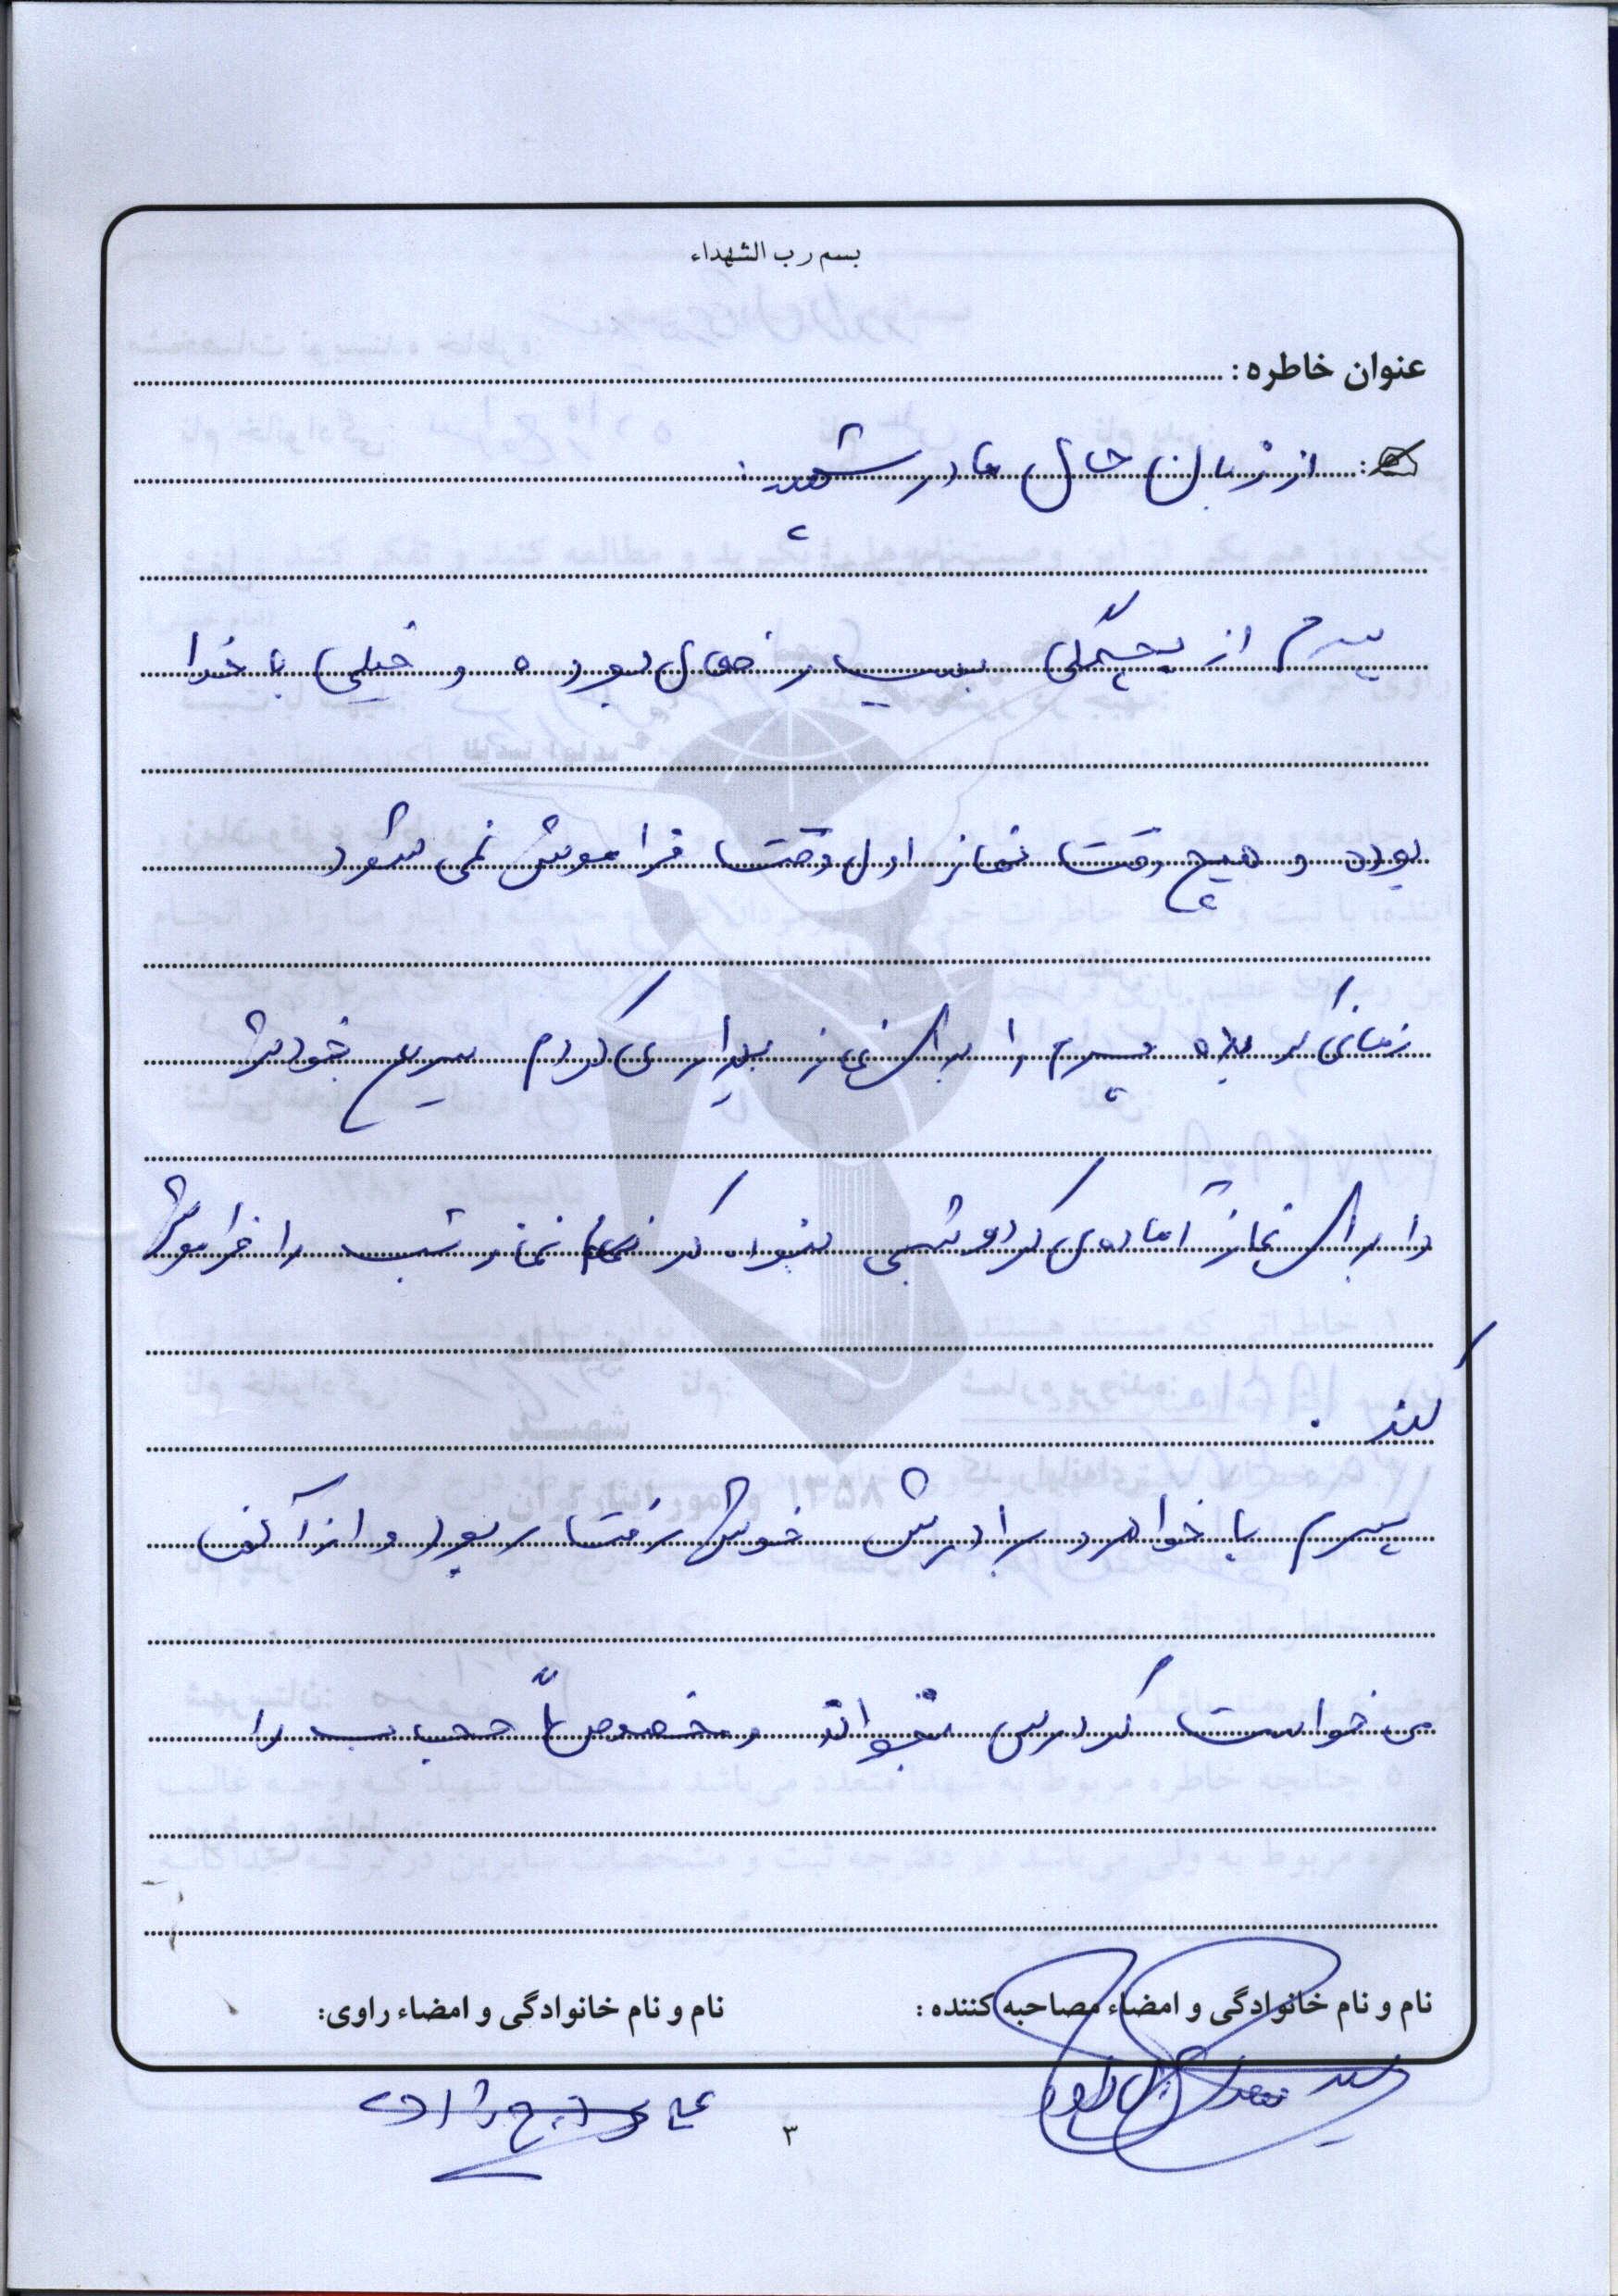 بسم رب الشهداء
عنوان خاطره :
از زبان حال مادر شهید :
پسرم از بچگی بسیار فعال بوده و خیلی با خدا
بوده و هیچ وقت نماز اول وقت فراموش نمی شود
زمانی که پسرم را برای نماز بیدار می کردم سریع خودش
را برای نماز آماده می کرد و شبی نبود که نماز شب را فراموش
کند .
پسرم با خواهر و برادرش خوش رفتار بود و از آنها
می خواست که درس بخوانند و مخصوصاً حجاب را
نام و نام خانوادگی و امضاء مصاحبه کننده :
نام و نام خانوادگی و امضاء راوی:
۳